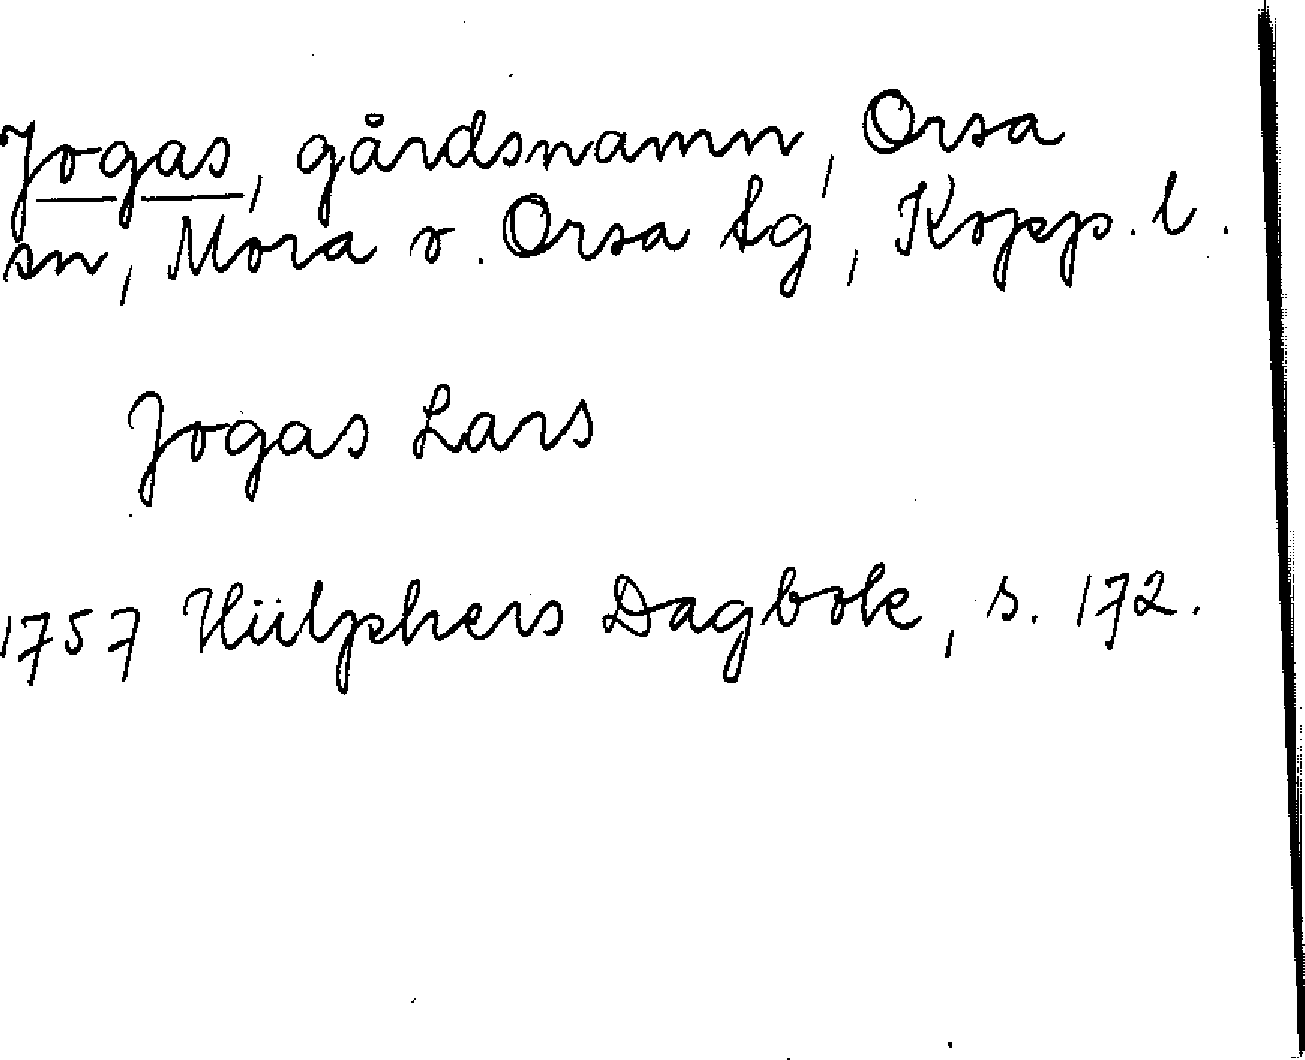 Jogas, gårdsnamn, Orsa
sn, Mora o. Orsa tg, Kopp. l.
Jogas Lars
1757 Hülphers Dagbok, s. 172.